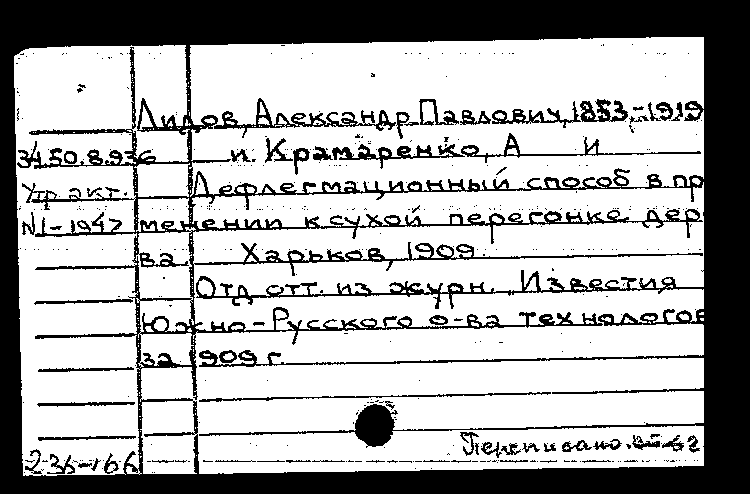 Лидов, Александр Павлович, 1853-1919
34.50.8.936 и Крамаренко, А И
Утр. акт. Дефлегмационный способ в при
N1-1947 менении к сухой перегонке дере
ва. Харьков, 1909.
Отд. отт. из журн. "Известия
Южно-Русского о-ва технологов
за 1909 г.
Переписано.
236-166